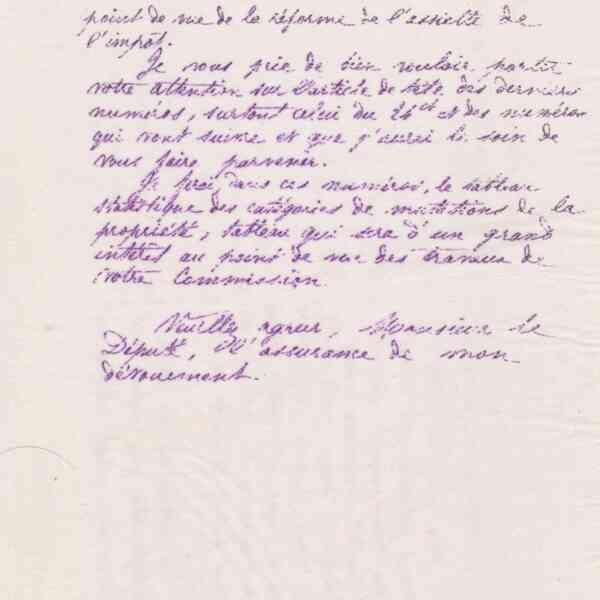 point de vue de la réforme de l'assiette de
l'impôt.
Je vous prie de bien vouloir porter
votre attention sur l'article de tête des derniers
numéros, surtout celui du 24 et des numéros
qui vont suivre et que j'aurai le soin de
vous faire parvenir.
Je ferai, dans ces numéros, le tableau
statistique des catégories de mutations de la
propriété, tableau qui sera d'un grand
intérêt au point de vue des travaux de
votre Commission.
Veuillez agréer, Monsieur le
Député, l'assurance de mon
dévouement.